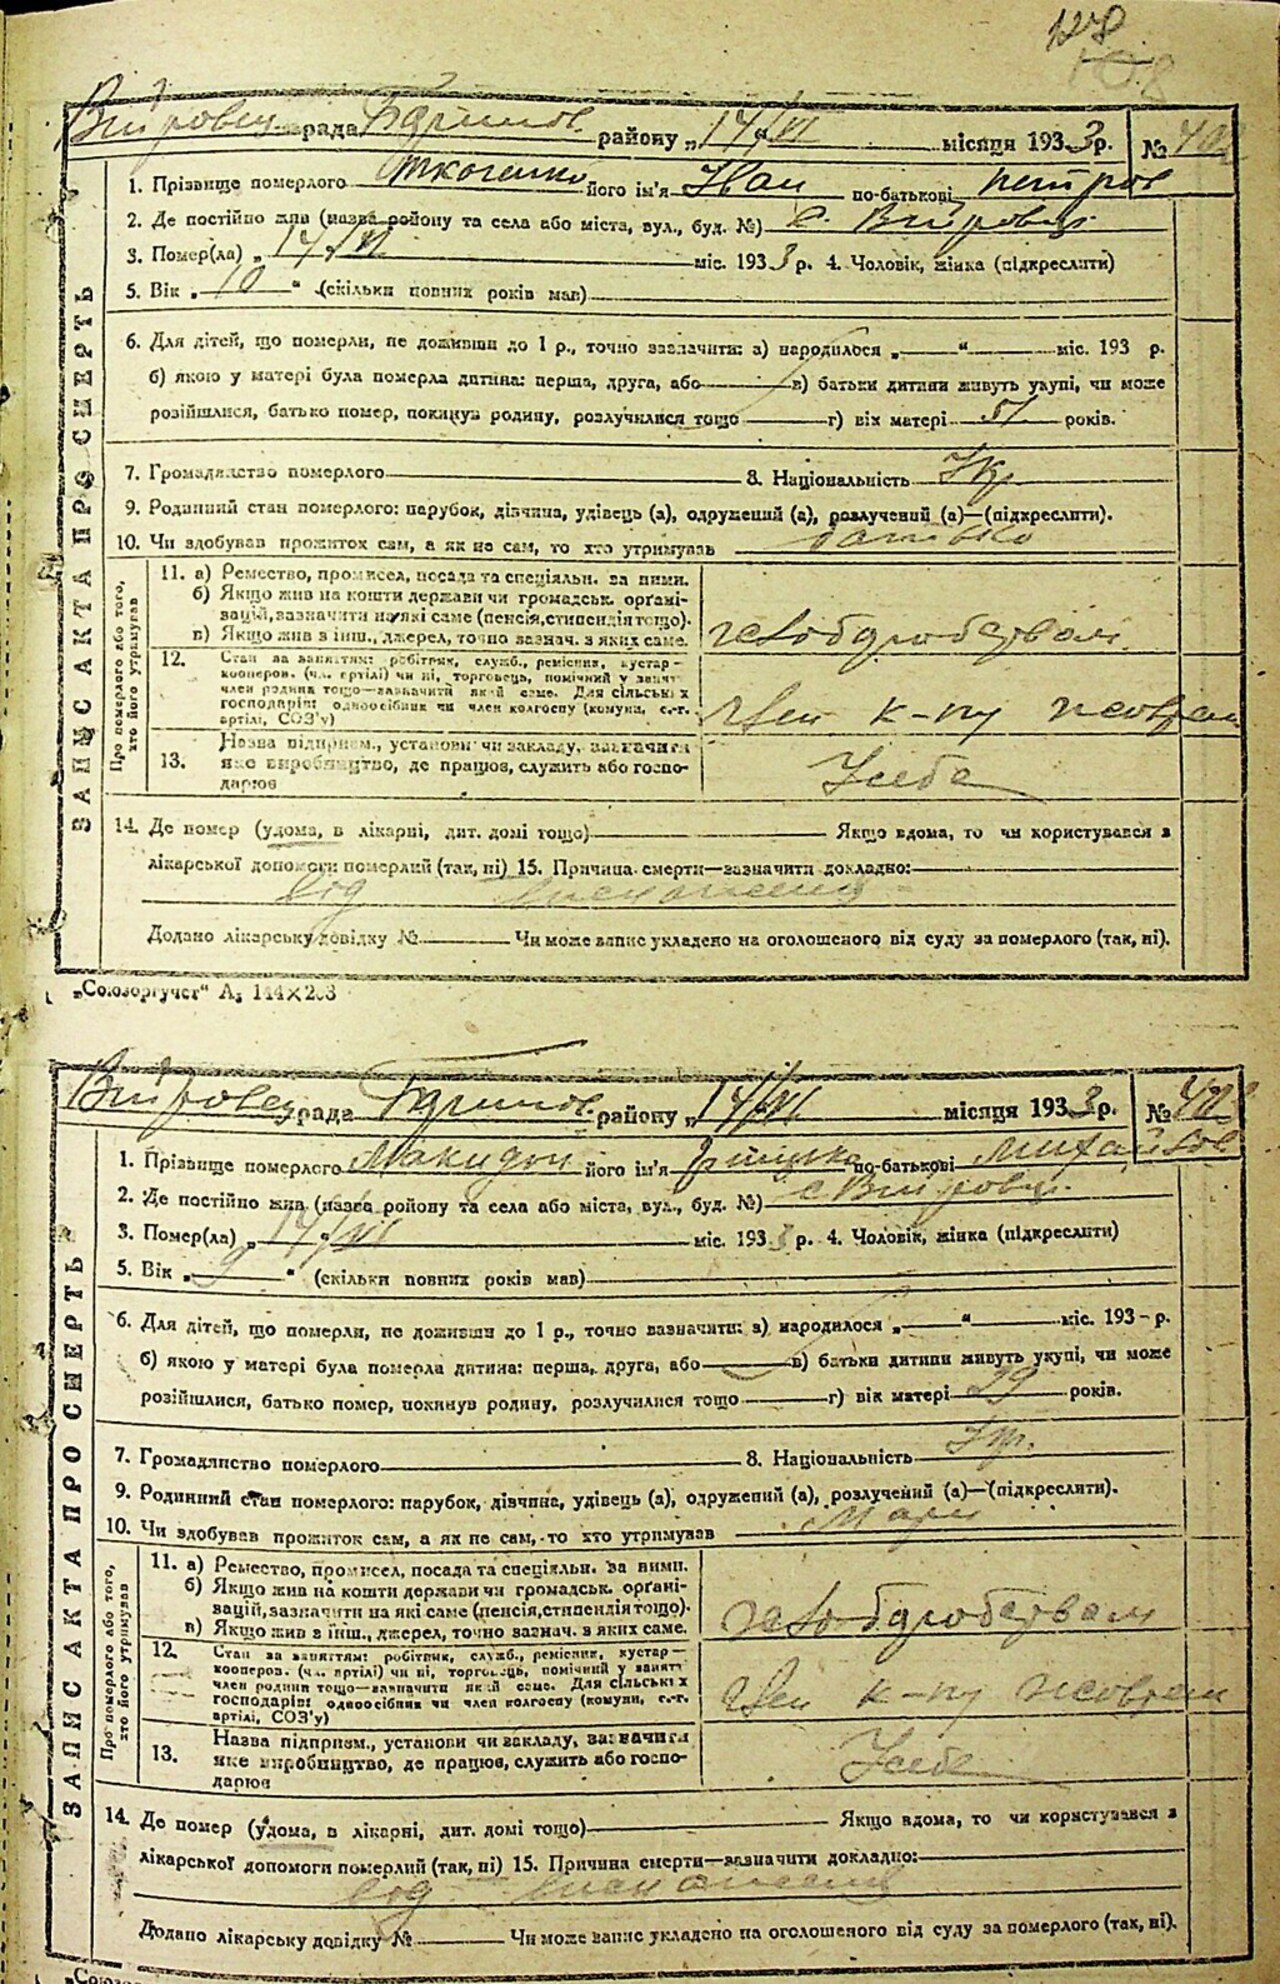 128
108
Війтовец. рада Бариш. району „14/VI місяця 1933 р. №
1. Прізвище померлого Ткаченко його ім'я Іван по-батькові Петров
2. Де постійно жив (назва району та села або міста, вул., буд. №) с. Війтовці
3. Помер(ла) „14/VI міс. 1933 р. 4. Чоловік, жінка (підкреслити)
5. Вік „10“ (скільки повних років мав)
6. Для дітей, що померли, не доживши до 1 р., точно зазначити: а) народилося „ “ міс. 193 р.
б) якою у матері була померла дитина: перша, друга, або в) батьки дитини живуть укупі, чи може
розійшлися, батько помер, покинув родину, розлучилися тощо г) вік матері 51 років.
7. Громадянство померлого 8. Національність Укр
9. Родинний стан померлого: парубок, дівчина, удівець (а), одружений (а), розлучений (а)—(підкреслити).
10. Чи здобував прожиток сам, а як не сам, то хто утримував батько
ЗАПИС АКТА ПРО СМЕРТЬ
Про померлого або того, хто його утримував
11. а) Ремество, промисел, посада та спеціяльн. за ними.
б) Якщо жив на кошти держави чи громадськ. органі-
зацій, зазначити на які саме (пенсія, стипендія тощо).
в) Якщо жив з інш., джерел, точно зазнач. з яких саме. хлібороб
12. Стан за заняттям: робітник, служб., ремісник, кустар—
кооперов. (чл. артілі) чи ні, торговець, помічний у занят
член родини тощо—зазначити який саме. Для сільських
господарів: одноосібник чи член колгоспу (комуни, с.-г.
артілі, СОЗ'у) Член к-пу
13. Назва підприєм., установи чи закладу, зазначити
яке виробництво, де працює, служить або госпо-
дарює У себе
14. Де помер (удома, в лікарні, дит. домі тощо) Якщо вдома, то чи користувався з
лікарської допомоги померлий (так, ні) 15. Причина смерти—зазначити докладно:
від виснаження
Додано лікарську довідку № Чи може запис укладено на оголошеного від суду за померлого (так, ні).
„Союзоргучет“ А₅ 144×203
Війтовец. рада Бариш. району „14/VI місяця 1933 р. №
1. Прізвище померлого Макидон його ім'я Грицько по-батькові Михайлов
2. Де постійно жив (назва району та села або міста, вул., буд. №) с Війтовці
3. Помер(ла) „14/VI міс. 1933 р. 4. Чоловік, жінка (підкреслити)
5. Вік „9“ (скільки повних років мав)
6. Для дітей, що померли, не доживши до 1 р., точно зазначити: а) народилося „ “ міс. 193 – р.
б) якою у матері була померла дитина: перша, друга, або в) батьки дитини живуть укупі, чи може
розійшлися, батько помер, покинув родину, розлучилися тощо г) вік матері 29 років.
7. Громадянство померлого 8. Національність Укр.
9. Родинний стан померлого: парубок, дівчина, удівець (а), одружений (а), розлучений (а)—(підкреслити).
10. Чи здобував прожиток сам, а як не сам, то хто утримував Мати
ЗАПИС АКТА ПРО СМЕРТЬ
Про померлого або того, хто його утримував
11. а) Ремество, промисел, посада та спеціяльн. за ними.
б) Якщо жив на кошти держави чи громадськ. органі-
зацій, зазначити на які саме (пенсія, стипендія тощо).
в) Якщо жив з інш., джерел, точно зазнач. з яких саме. хлібороб
12. Стан за заняттям: робітник, служб., ремісник, кустар—
кооперов. (чл. артілі) чи ні, торговець, помічний у занят
член родини тощо—зазначити який саме. Для сільських
господарів: одноосібник чи член колгоспу (комуни, с.-г.
артілі, СОЗ'у) Член к-пу
13. Назва підприєм., установи чи закладу, зазначити
яке виробництво, де працює, служить або госпо-
дарює У себе
14. Де помер (удома, в лікарні, дит. домі тощо) Якщо вдома, то чи користувався з
лікарської допомоги померлий (так, ні) 15. Причина смерти—зазначити докладно:
від виснаження
Додано лікарську довідку № Чи може запис укладено на оголошеного від суду за померлого (так, ні).